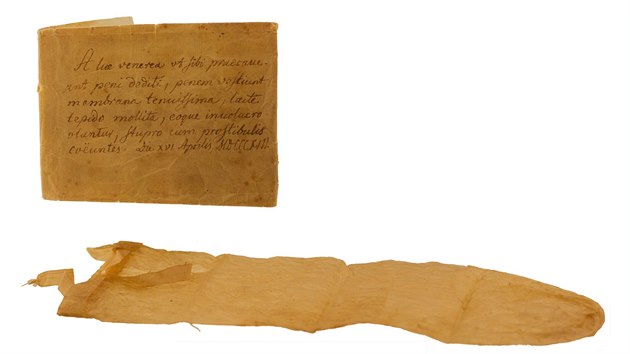 A lue venerea vt sibi præcaue-
ant peni dediti, penem vestiunt
membrana tenuissima, lacte
tepido mollita, eoque inuolucro
vtuntur, stupro cum prostibulis
coëuntes. Die XVI Aprilis